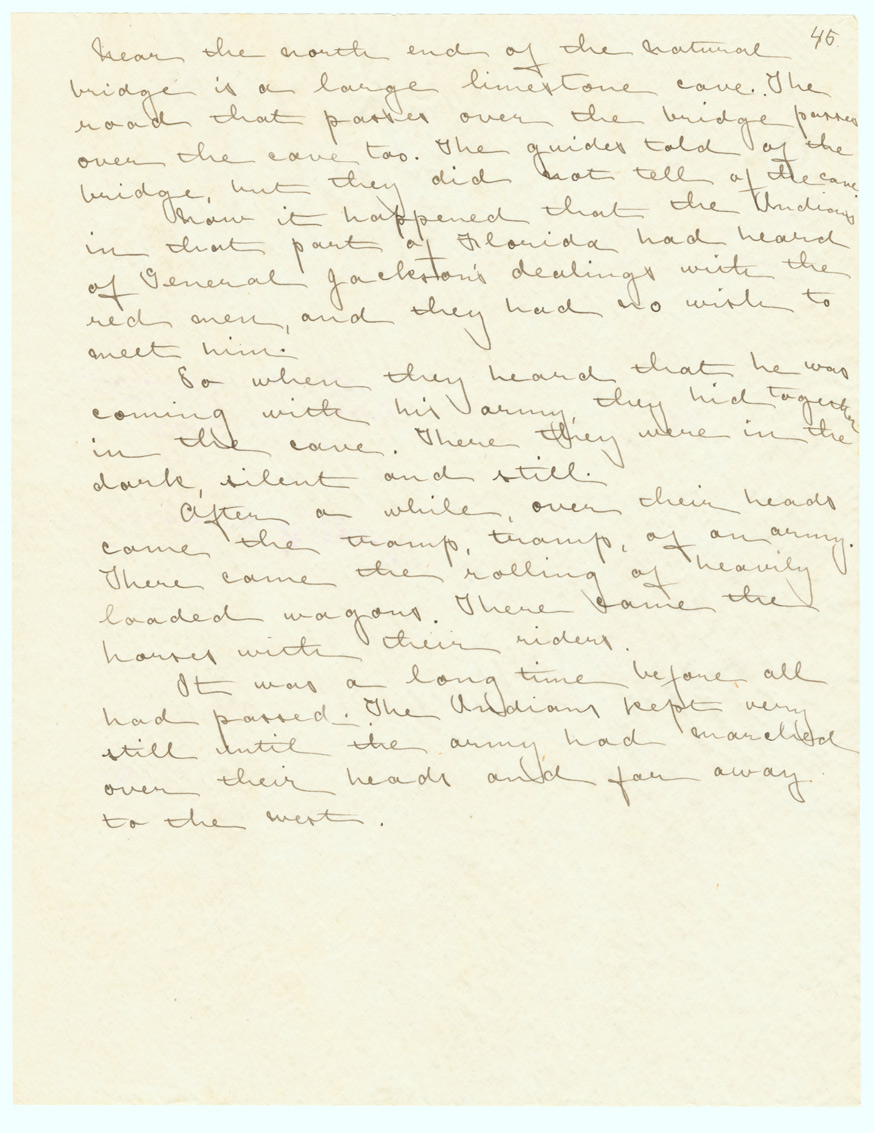 45
Near the north end of the natural
bridge is a large limestone cave. The
road that passes over the bridge passes
over the cave too. The guides told of the
bridge, but they did not tell of the cave.
Now it happened that the Indians
in that part of Florida had heard
of General Jackson's dealings with the
red men, and they had no wish to
meet him.
So when they heard that he was
coming with his army, they hid together
in the cave. There they were in the
dark, silent and still.
After a while, over their heads
came the tramp, tramp, of an army.
There came the rolling of heavily
loaded wagons. There came the
horses with their riders.
It was a long time before all
had passed. The Indians kept very
still until the army had marched
over their heads and far away
to the west.